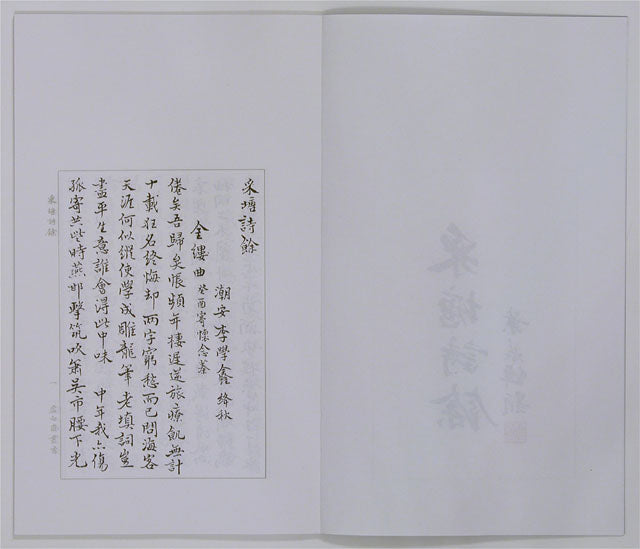 采塘詩餘
采塘詩餘
潮安 李學鑫 絳秋
金縷曲 癸酉寄懷念蓁
倦矣吾歸矣悵頻年棲遲逆旅療飢無計
十載狂名終悔却兩字窮愁而已問海客
天涯何似縱使學成雕龍筆老填詞豈
盡平生意誰會得此中味 中年我亦傷
孤寄共此時燕邯擊筑吹簫吴市腰下光
采塘詩餘
一